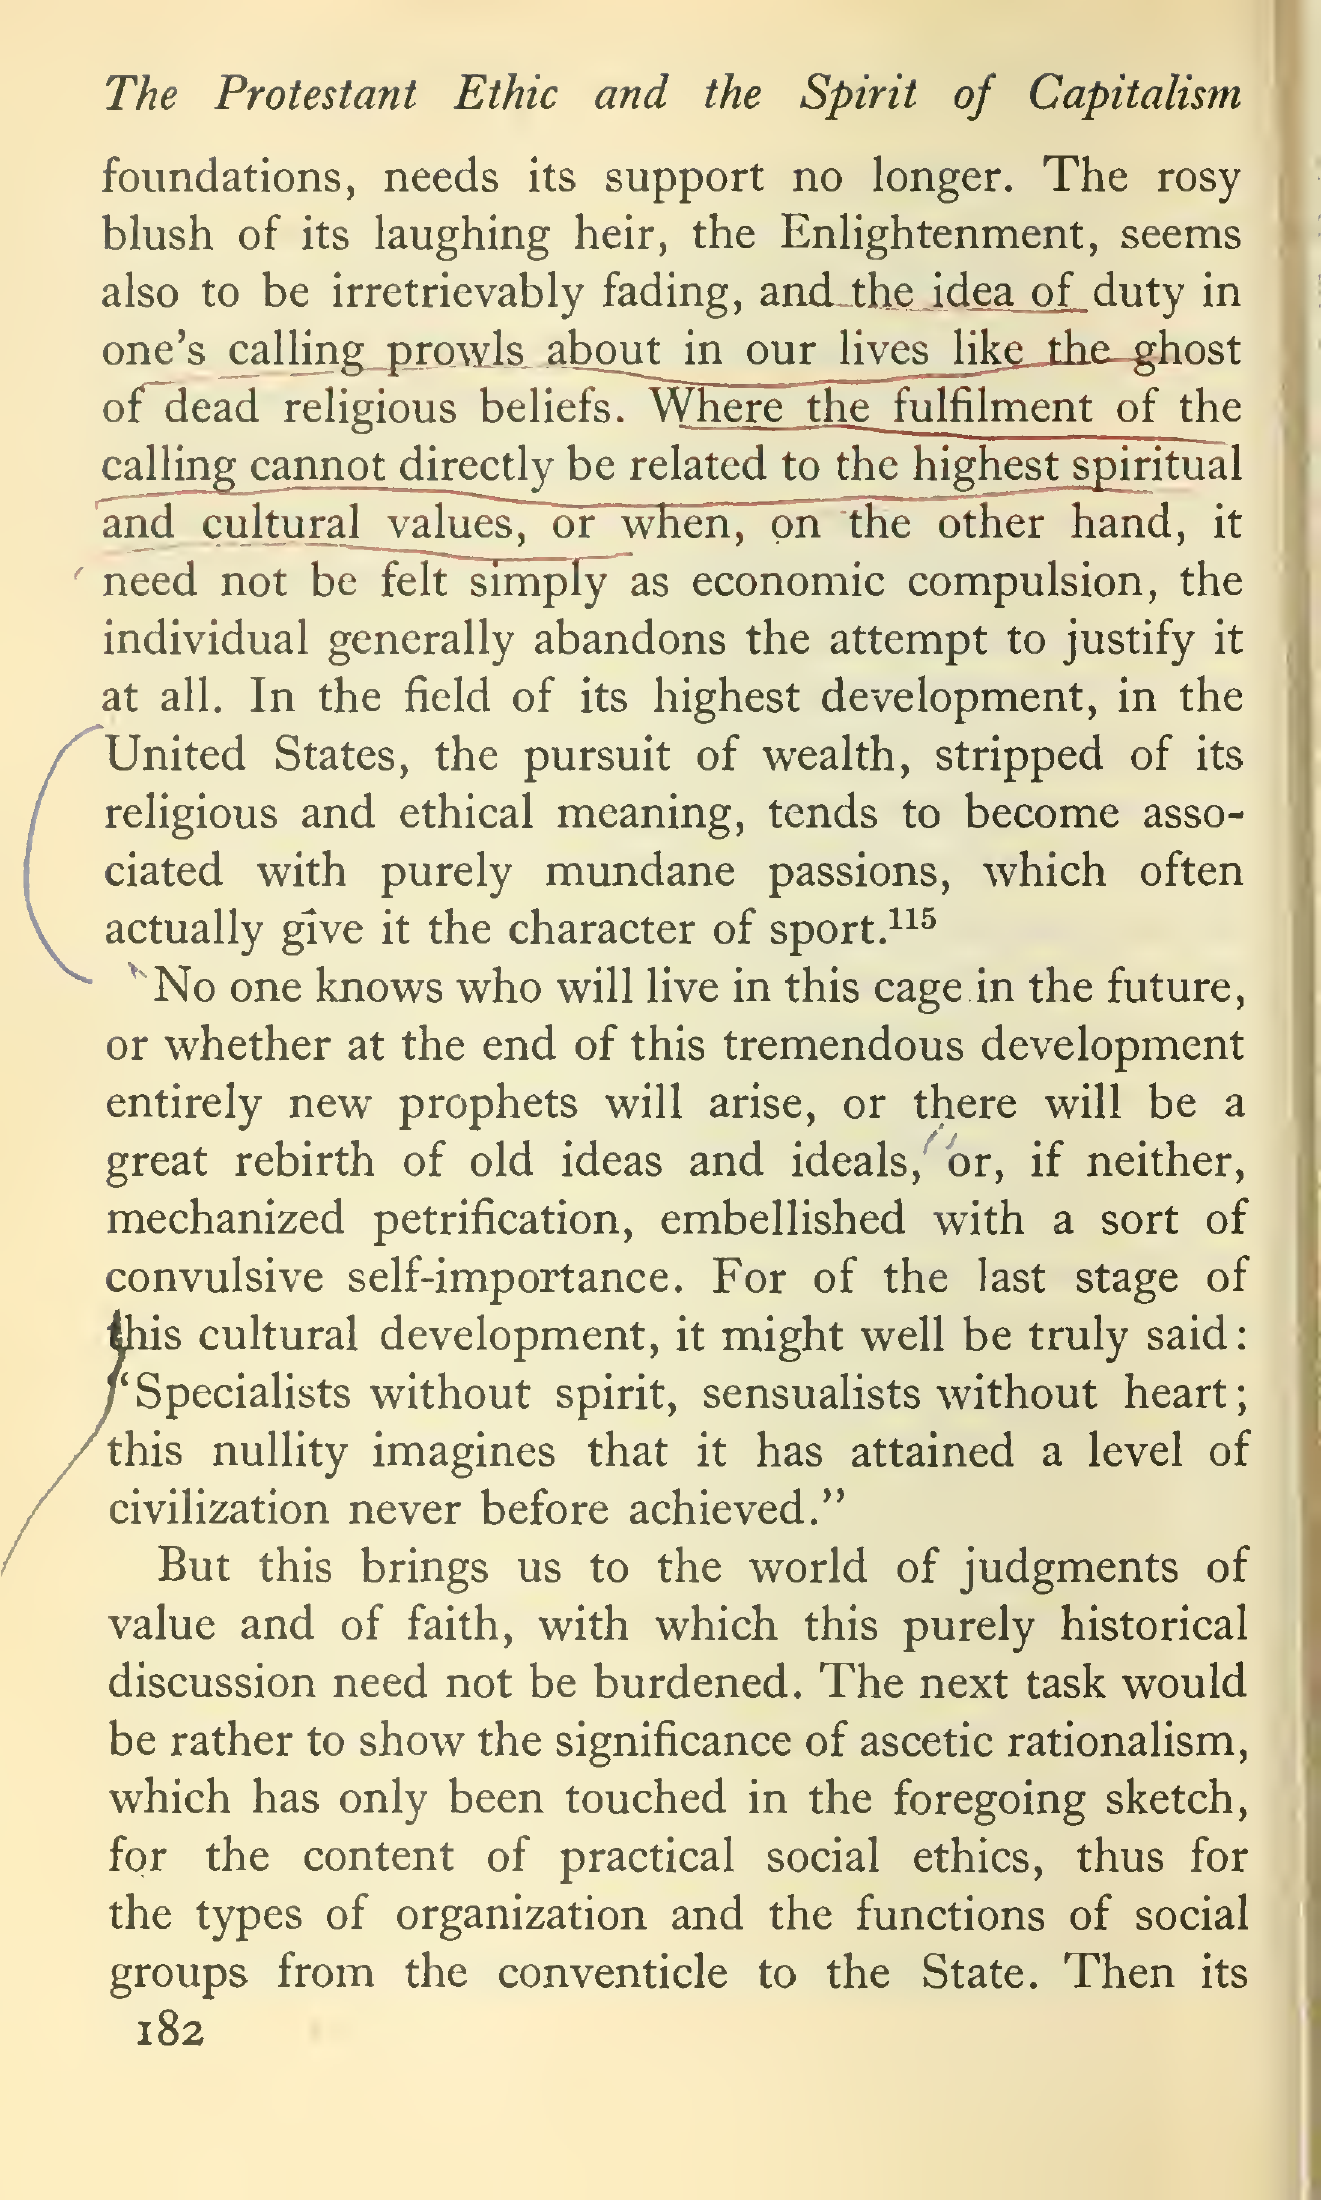 The Protestant Ethic and the Spirit of Capitalism
foundations, needs its support no longer. The rosy
blush of its laughing heir, the Enlightenment, seems
also to be irretrievably fading, and the idea of duty in
one's calling prowls about in our lives like the ghost
of dead religious beliefs. Where the fulfilment of the
calling cannot directly be related to the highest spiritual
and cultural values, or when, on the other hand, it
need not be felt simply as economic compulsion, the
individual generally abandons the attempt to justify it
at all. In the field of its highest development, in the
United States, the pursuit of wealth, stripped of its
religious and ethical meaning, tends to become asso-
ciated with purely mundane passions, which often
actually give it the character of sport.¹¹⁵
No one knows who will live in this cage in the future,
or whether at the end of this tremendous development
entirely new prophets will arise, or there will be a
great rebirth of old ideas and ideals, or, if neither,
mechanized petrification, embellished with a sort of
convulsive self-importance. For of the last stage of
this cultural development, it might well be truly said:
"Specialists without spirit, sensualists without heart;
this nullity imagines that it has attained a level of
civilization never before achieved."
But this brings us to the world of judgments of
value and of faith, with which this purely historical
discussion need not be burdened. The next task would
be rather to show the significance of ascetic rationalism,
which has only been touched in the foregoing sketch,
for the content of practical social ethics, thus for
the types of organization and the functions of social
groups from the conventicle to the State. Then its
182